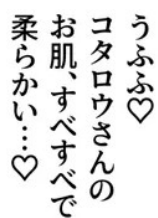 うふふ♡
コタロウさんの
お肌、すべすべで
柔らかい…♡